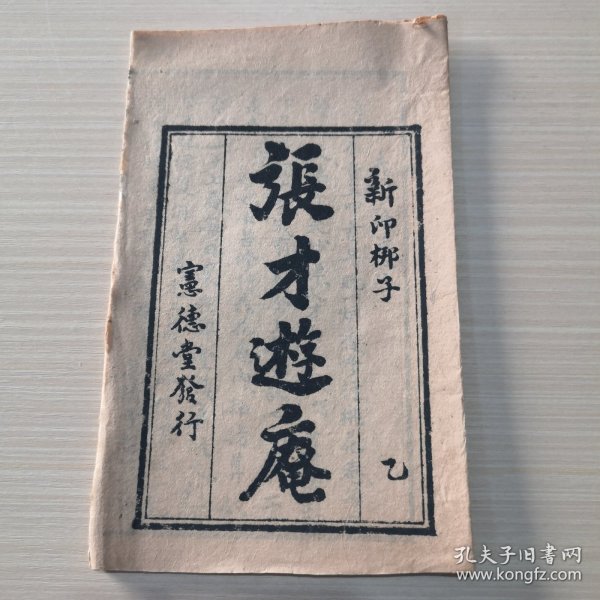 新印梆子
乙
張才遊庵
憲德堂發行
孔夫子旧书网
www.kongfz.com